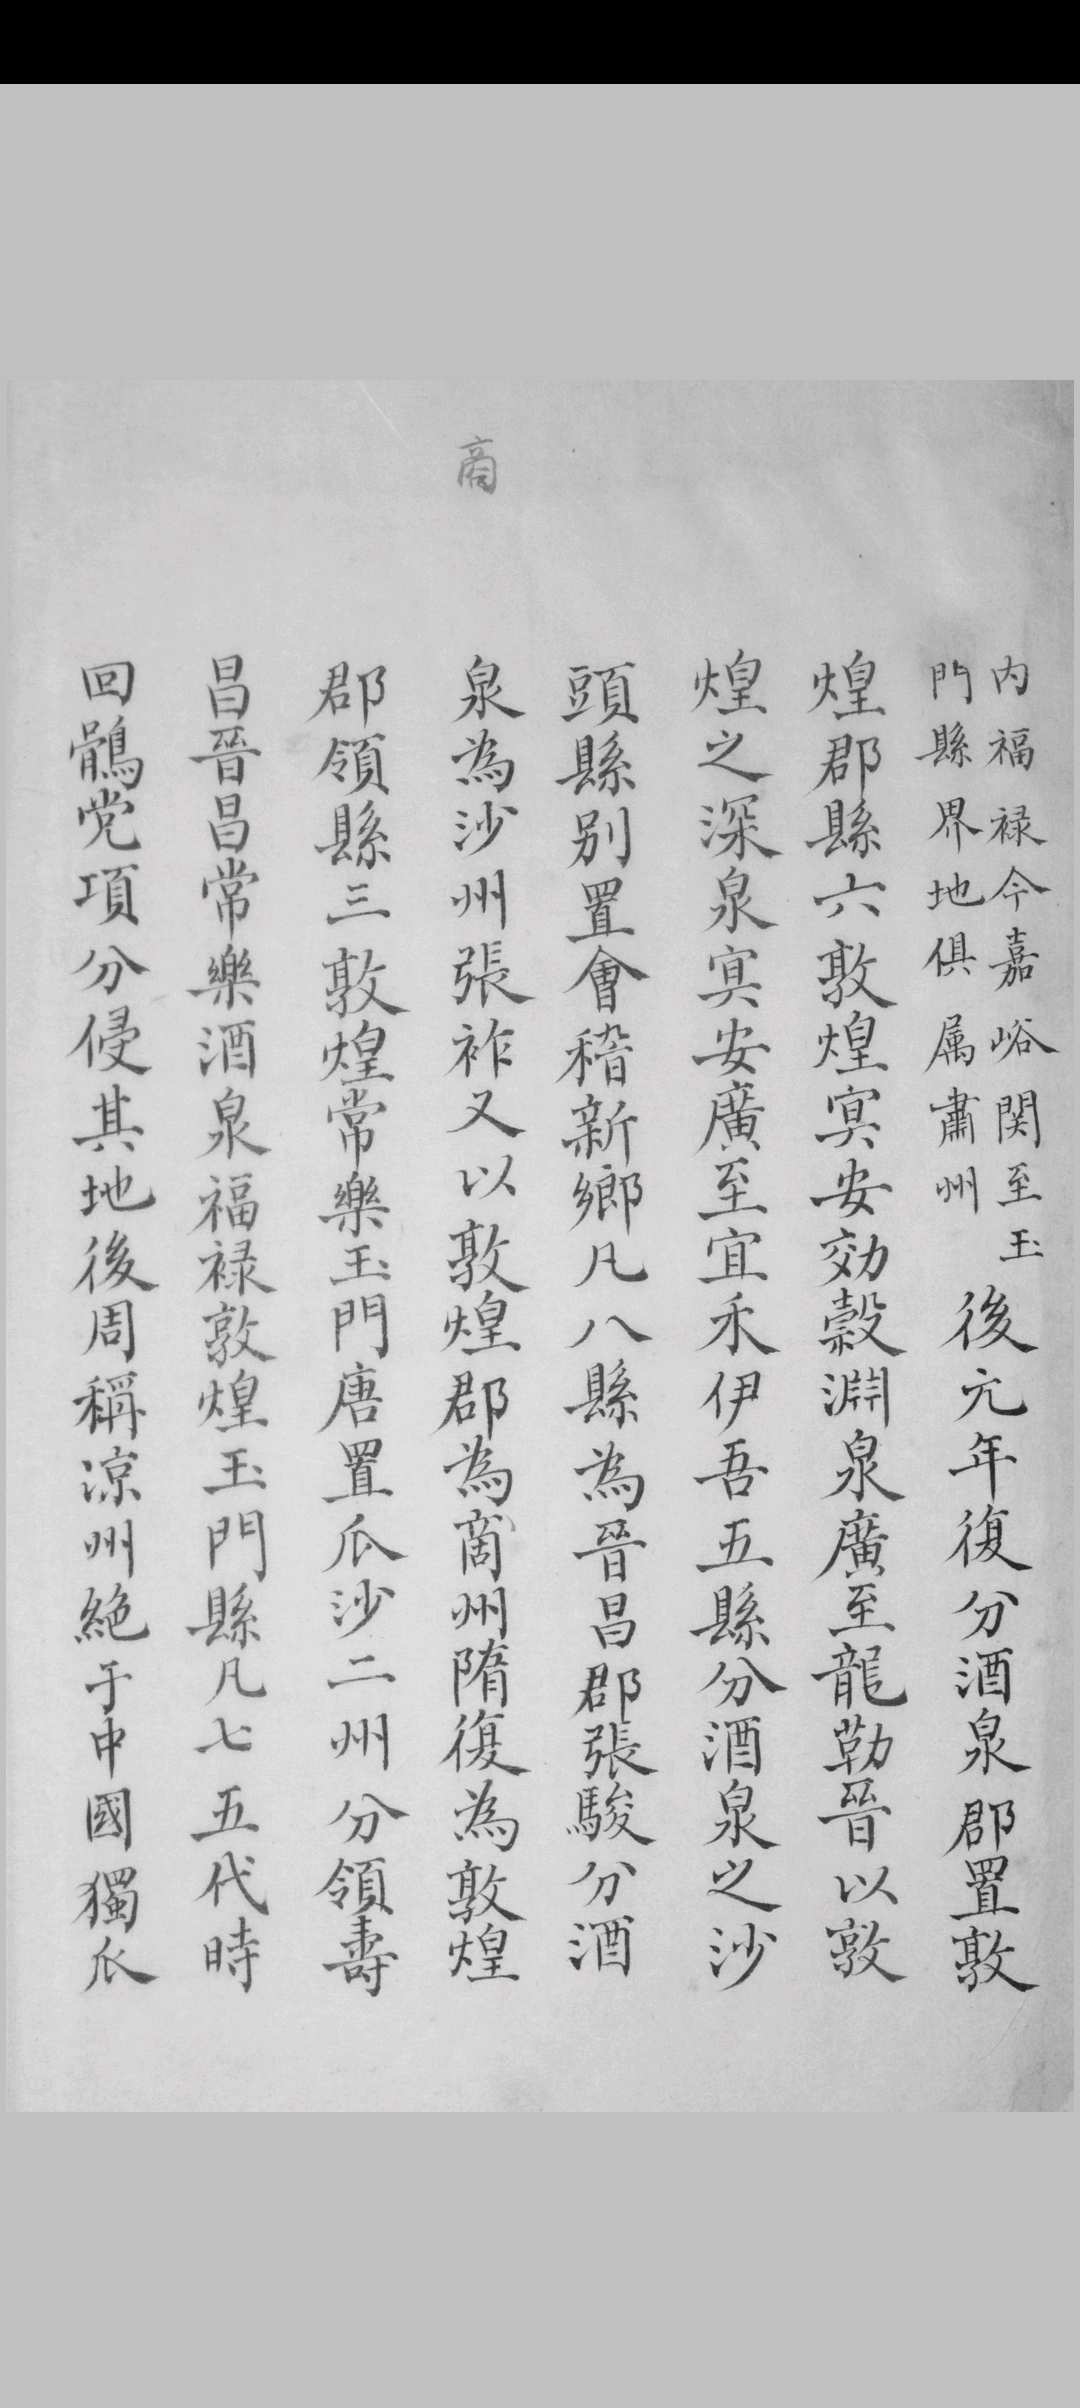 商
内福禄今嘉峪関至玉
門縣界地俱属肅州
後元年復分酒泉郡置敦
煌郡縣六敦煌寘安効穀淵泉廣至龍勒晉以敦
煌之深泉寘安廣至宜禾伊吾五縣分酒泉之沙
頭縣别置會稽新鄉凡八縣為晉昌郡張駿分酒
泉為沙州張祚又以敦煌郡為啇州隋復為敦煌
郡領縣三敦煌常樂玉門唐置瓜沙二州分領壽
昌晉昌常樂酒泉福禄敦煌玉門縣凡七五代時
回鶻党項分侵其地後周稱凉州絶于中國獨瓜